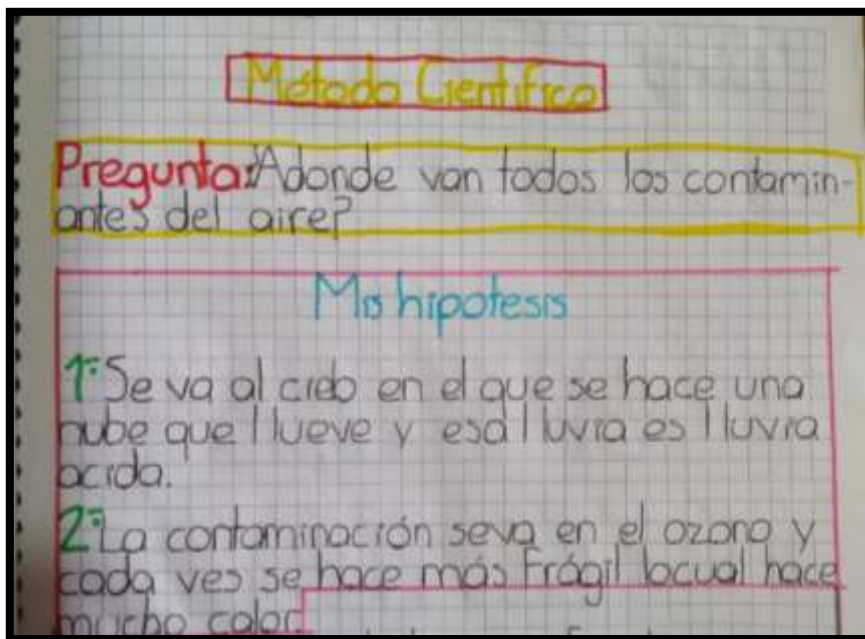 Método Cientifico
Pregunta: ¿Adonde van todos los contamin-
antes del aire?
Mis hipotesis
1- Se va al cielo en el que se hace una
nube que llueve y esa lluvia es lluvia
acida.
2- La contaminación seva en el ozono y
cada ves se hace más Frágil locual hace
mucho calor.